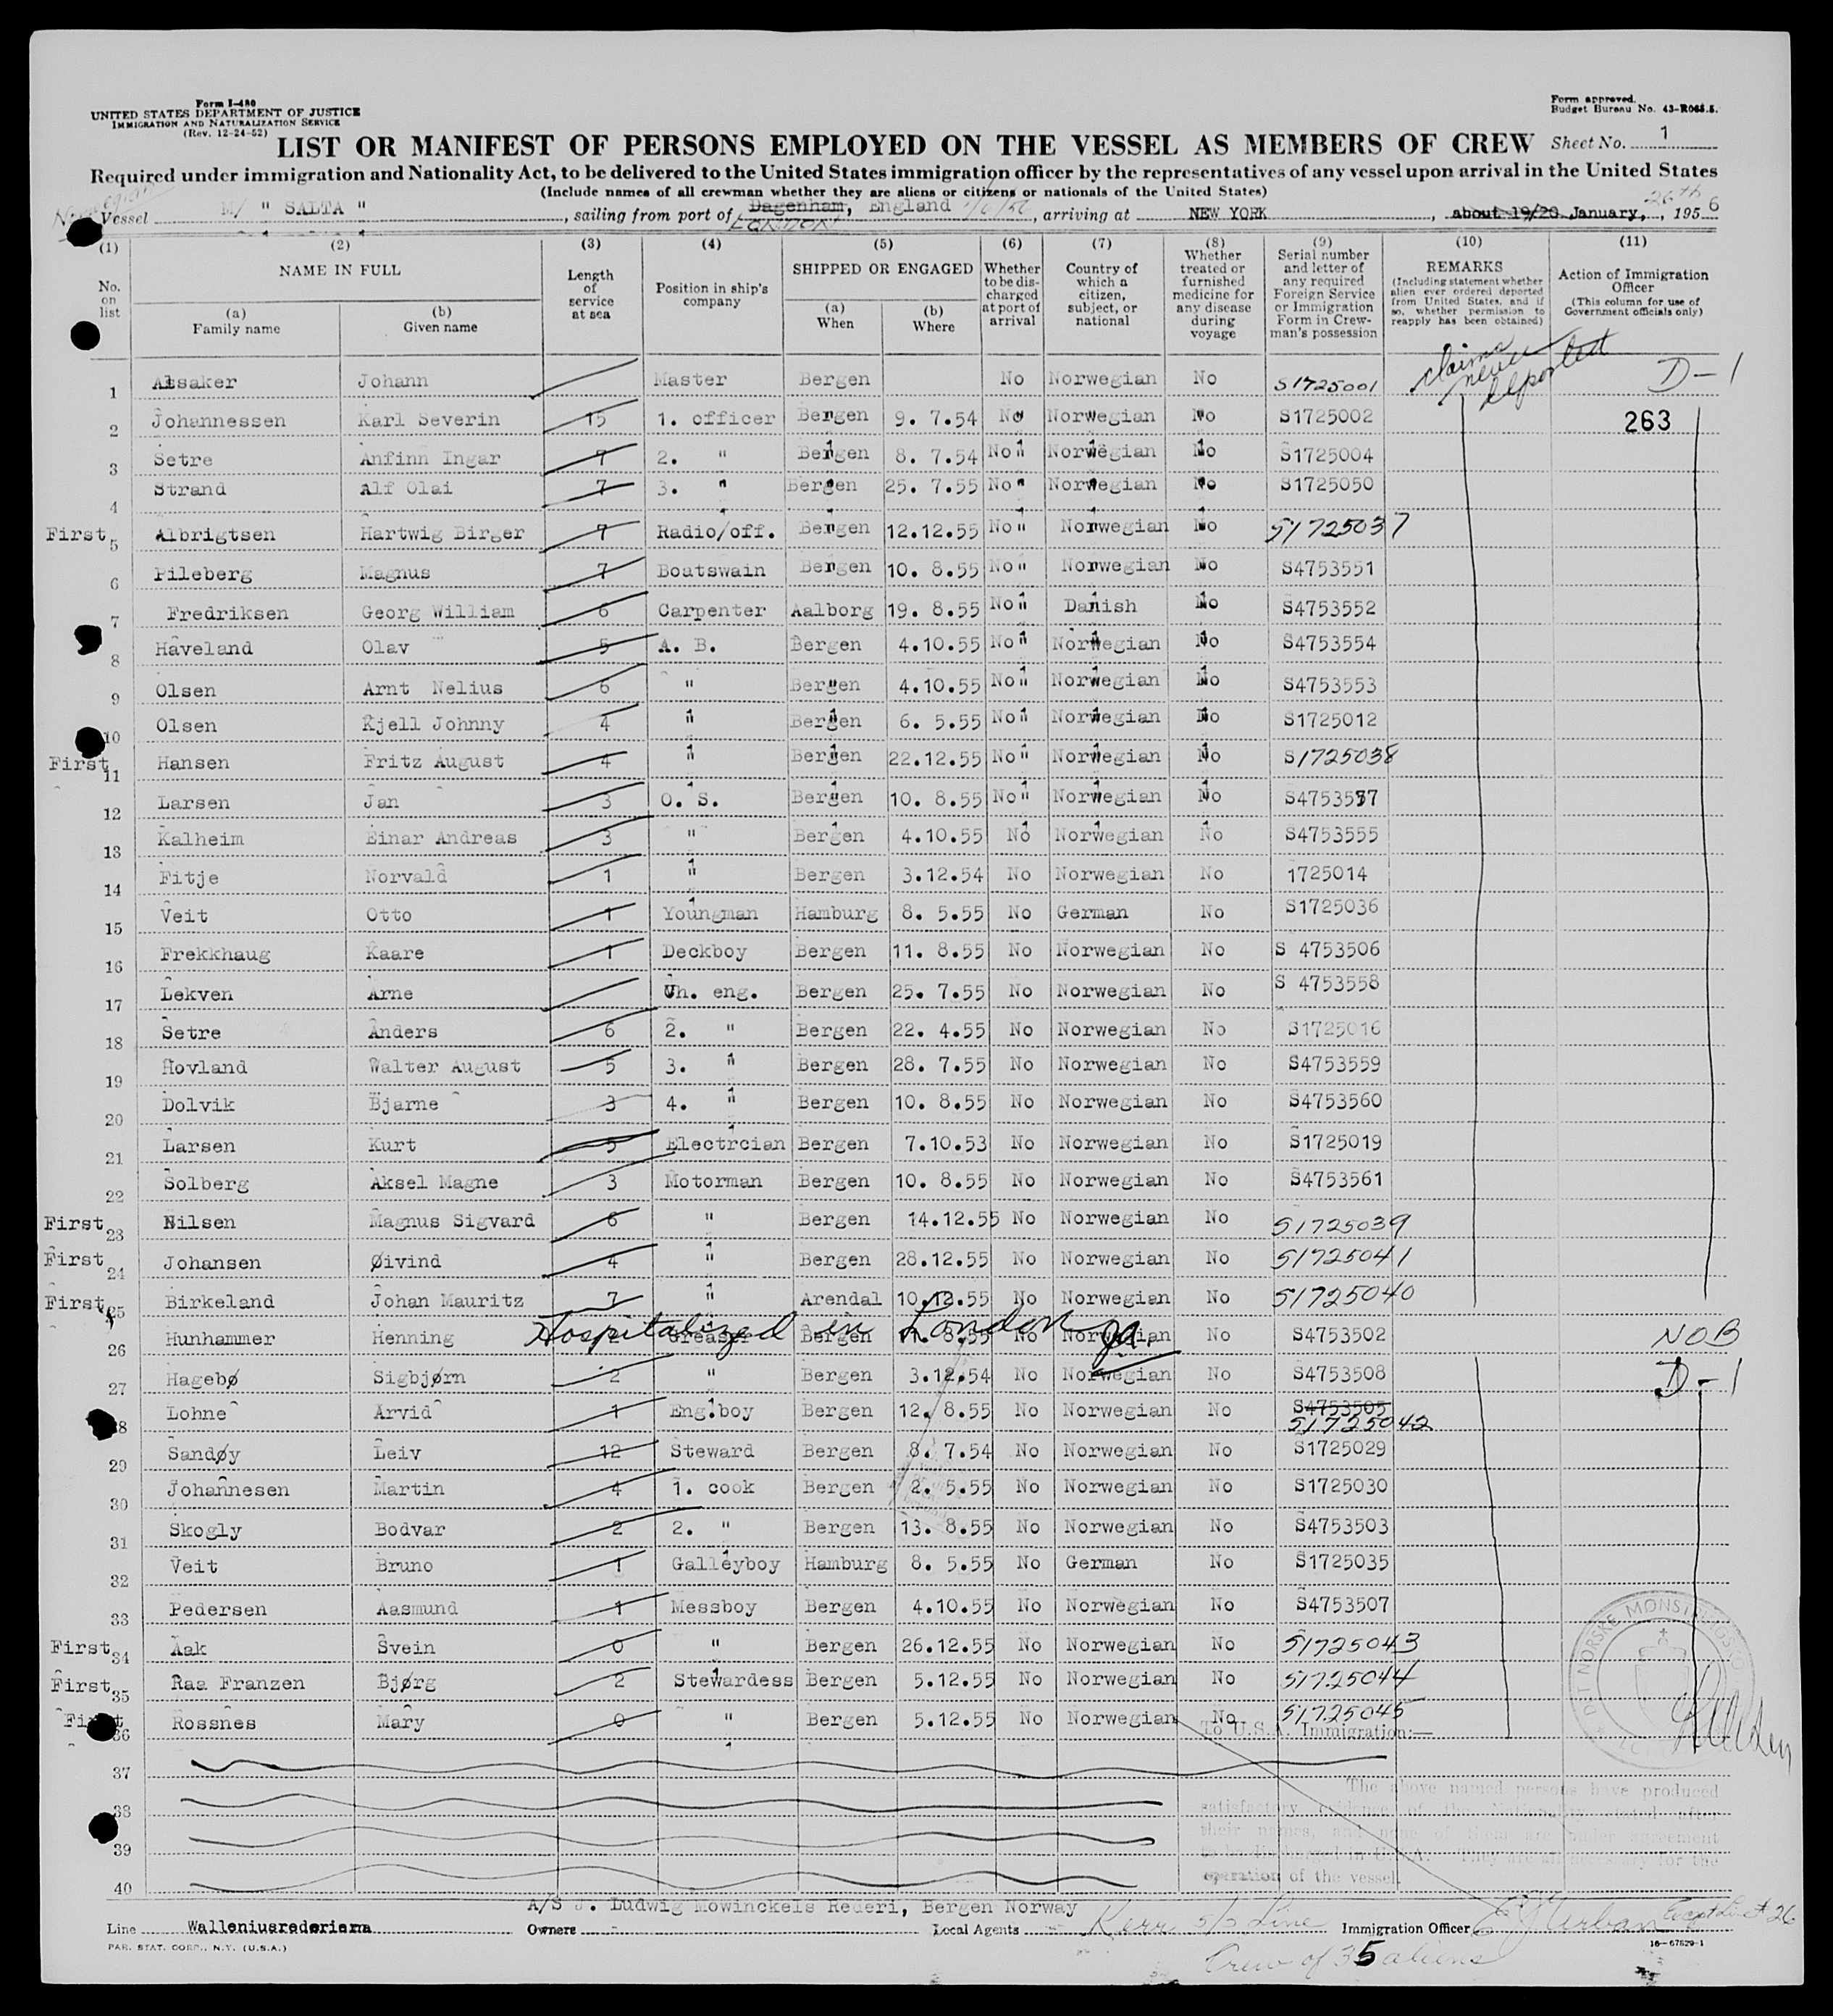 Form I-480
UNITED STATES DEPARTMENT OF JUSTICE
IMMIGRATION AND NATURALIZATION SERVICE
(Rev. 12-24-52)
Form approved.
Budget Bureau No. 43-R065.5.
LIST OR MANIFEST OF PERSONS EMPLOYED ON THE VESSEL AS MEMBERS OF CREW Sheet No. 1
Required under immigration and Nationality Act, to be delivered to the United States immigration officer by the representatives of any vessel upon arrival in the United States
(Include names of all crewman whether they are aliens or citizens or nationals of the United States)
Norwegian
Vessel M/ " SALTA " , sailing from port of Dagenham, England LONDON , arriving at NEW YORK , about 19/20 January, 26th , 1956
(1) (2) (3) (4) (5) (6) (7) (8) (9) (10) (11)
No. on list
NAME IN FULL
(a) Family name
(b) Given name
Length of service at sea
Position in ship's company
SHIPPED OR ENGAGED
(a) When
(b) Where
Whether to be discharged at port of arrival
Country of which a citizen, subject, or national
Whether treated or furnished medicine for any disease during voyage
Serial number and letter of any required Foreign Service or Immigration Form in Crewman's possession
REMARKS
(Including statement whether alien ever ordered deported from United States, and if so, whether permission to reapply has been obtained)
Action of Immigration Officer
(This column for use of Government officials only)
claims never deported
1 Alsaker Johann Master Bergen No Norwegian No S1725001 D-1
2 Johannessen Karl Severin 15 1. officer Bergen 9. 7.54 No Norwegian No S1725002 263
3 Setre Anfinn Ingar 7 2. " Bergen 8. 7.54 No Norwegian No S1725004
4 Strand Alf Olai 7 3. " Bergen 25. 7.55 No Norwegian No S1725050
First 5 Albrigtsen Hartwig Birger 7 Radio/off. Bergen 12.12.55 No Norwegian No S1725037
6 Pileberg Magnus 7 Boatswain Bergen 10. 8.55 No Norwegian No S4753551
7 Fredriksen Georg William 6 Carpenter Aalborg 19. 8.55 No Danish No S4753552
8 Haveland Olav 5 A. B. Bergen 4.10.55 No Norwegian No S4753554
9 Olsen Arnt Nelius 6 " Bergen 4.10.55 No Norwegian No S4753553
10 Olsen Kjell Johnny 4 " Bergen 6. 5.55 No Norwegian No S1725012
First 11 Hansen Fritz August 4 " Bergen 22.12.55 No Norwegian No S1725038
12 Larsen Jan 3 O. S. Bergen 10. 8.55 No Norwegian No S4753557
13 Kalheim Einar Andreas 3 " Bergen 4.10.55 No Norwegian No S4753555
14 Fitje Norvald 1 " Bergen 3.12.54 No Norwegian No 1725014
15 Veit Otto 1 Youngman Hamburg 8. 5.55 No German No S1725036
16 Frekkhaug Kaare 1 Deckboy Bergen 11. 8.55 No Norwegian No S 4753506
17 Lekven Arne Ch. eng. Bergen 25. 7.55 No Norwegian No S 4753558
18 Setre Anders 6 2. " Bergen 22. 4.55 No Norwegian No S1725016
19 Hovland Walter August 5 3. " Bergen 28. 7.55 No Norwegian No S4753559
20 Dolvik Bjarne 3 4. " Bergen 10. 8.55 No Norwegian No S4753560
21 Larsen Kurt 5 Electrcian Bergen 7.10.53 No Norwegian No S1725019
22 Solberg Aksel Magne 3 Motorman Bergen 10. 8.55 No Norwegian No S4753561
First 23 Nilsen Magnus Sigvard 6 " Bergen 14.12.55 No Norwegian No S1725039
First 24 Johansen Øivind 4 " Bergen 28.12.55 No Norwegian No S1725041
First 25 Birkeland Johan Mauritz 7 " Arendal 10.12.55 No Norwegian No S1725040
26 Hunhammer Henning Greaser Bergen 11. 8.55 No Norwegian No S4753502 NOB
Hospitalized in London
27 Hagebø Sigbjørn 2 " Bergen 3.12.54 No Norwegian No S4753508 D-1
28 Lohne Arvid 1 Eng.boy Bergen 12. 8.55 No Norwegian No S4753505 S1725042
29 Sandøy Leiv 12 Steward Bergen 8. 7.54 No Norwegian No S1725029
30 Johannesen Martin 4 1. cook Bergen 2. 5.55 No Norwegian No S1725030
31 Skogly Bodvar 2 2. " Bergen 13. 8.55 No Norwegian No S4753503
32 Veit Bruno 1 Galleyboy Hamburg 8. 5.55 No German No S1725035
33 Pedersen Aasmund 1 Messboy Bergen 4.10.55 No Norwegian No S4753507
First 34 Aak Svein 0 " Bergen 26.12.55 No Norwegian No S1725043
First 35 Raa Franzen Bjørg 2 Stewardess Bergen 5.12.55 No Norwegian No S1725044
First 36 Rossnes Mary 0 " Bergen 5.12.55 No Norwegian No S1725045
DET NORSKE MØNSTRINGS
To U.S.A. Immigration:—
37
The above named persons have produced
38 satisfactory evidence of the Nationality stated after
their names, and none of them are under agreement
39 to be discharged in U.S.A. They are all necessary for the
operation of the vessel.
40
A/S J. Ludwig Mowinckels Rederi, Bergen Norway
Line Walleniusrederierna Owners Local Agents Kerr S/S Line Immigration Officer Urban Except Line # 26
PAR. STAT. CORP., N.Y. (U.S.A.)
16—67529-1
Crew of 35 aliens